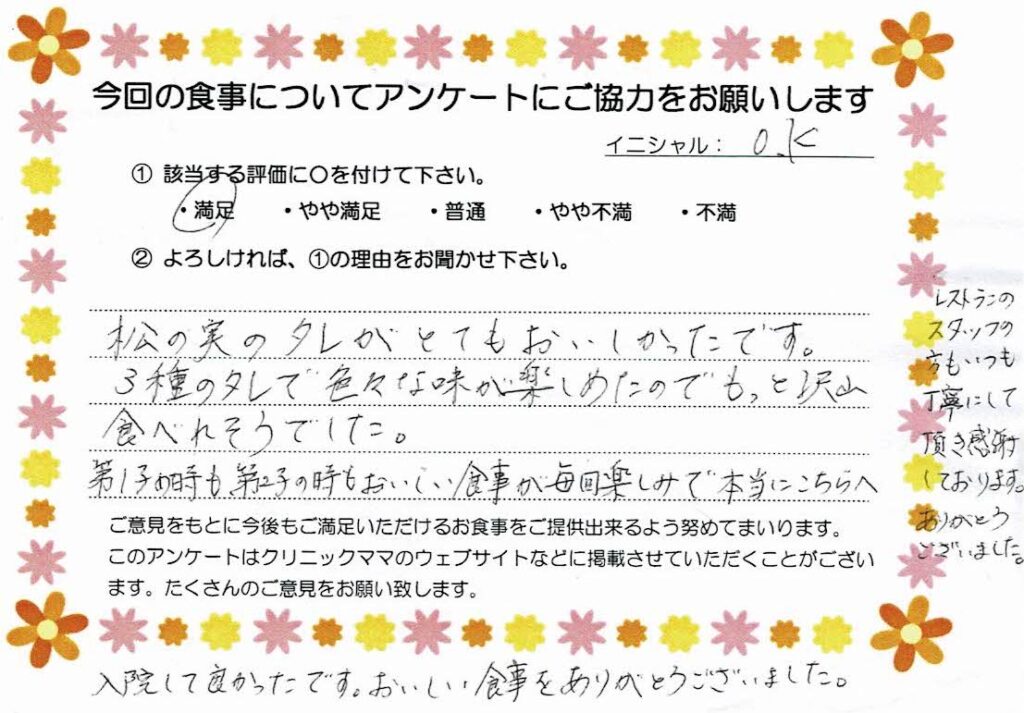 今回の食事についてアンケートにご協力をお願いします
イニシャル: O.K
① 該当する評価に〇を付けて下さい。
・満足 ・やや満足 ・普通 ・やや不満 ・不満
② よろしければ、①の理由をお聞かせ下さい。
松の実のタレがとてもおいしかったです。
3種のタレで色々な味が楽しめたのでもっと沢山
食べれそうでした。
第1子の時も第2子の時もおいしい食事が毎回楽しみで本当にこちらへ
入院して良かったです。おいしい食事をありがとうございました。
レストランの
スタッフの
方もいつも
丁寧にして
頂き感謝
しております。
ありがとう
ございました。
ご意見をもとに今後もご満足いただけるお食事をご提供出来るよう努めてまいります。
このアンケートはクリニックママのウェブサイトなどに掲載させていただくことがござい
ます。たくさんのご意見をお願い致します。